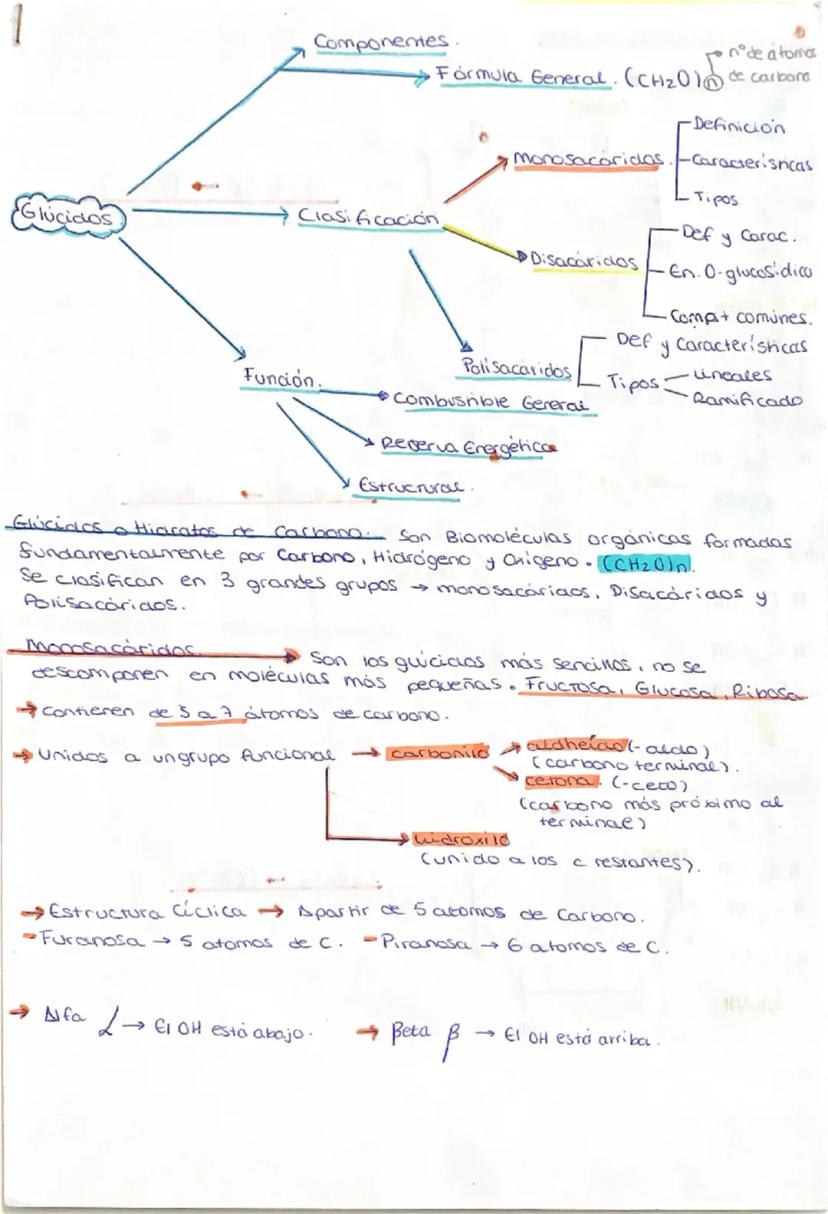 Componentes.
Fórmula General. (CH2O)n
nº de átomos
de carbono
Glúcidos
Clasificación
Monosacáridos.
Definición
Características
Tipos
Disacáridos
Def y Carac.
En. O-glucosídico
Comp + comunes.
Polisacáridos
Def y Características
Tipos
Lineales
Ramificado
Función.
Combustible General
Reserva Energética
Estructural.
Glúcidos o Hidratos de Carbono. Son Biomoléculas orgánicas formadas
fundamentalmente por Carbono, Hidrógeno y Oxígeno. (CH2O)n.
Se clasifican en 3 grandes grupos → monosacáridos, Disacáridos y
Polisacáridos.
Monosacáridos → Son los glúcidos más sencillos, no se
descomponen en moléculas más pequeñas. Fructosa, Glucosa, Ribosa
→ Contienen de 3 a 7 átomos de carbono.
→ Unidos a un grupo funcional → carbonilo → aldheído (-aldo)
(carbono terminal).
→ cetona. (-ceto)
(carbono más próximo al
terminal)
→ hidroxilo
(unido a los c restantes).
→ Estructura Cíclica → A partir de 5 atomos de Carbono.
- Furanosa → 5 atomos de C. - Piranosa → 6 atomos de C.
→ Alfa α → El OH está abajo. → Beta β → El OH está arriba.